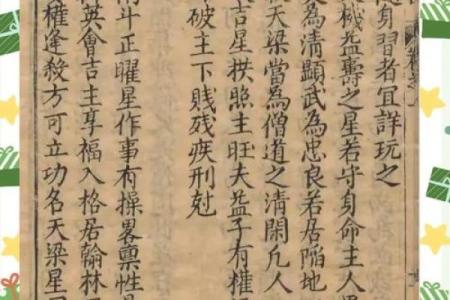 身習者宜詳玩之
機益壽之星若守身命主人
為清顯武為忠良若居陷地
天梁當為僧道之清閑凡人
吉星拱照主旺夫益子有權
破主下賤殘疾刑尅
南斗正曜星作事有操畧稟性
英會吉主享福入格居翰林
權逢殺方可立功名天梁星